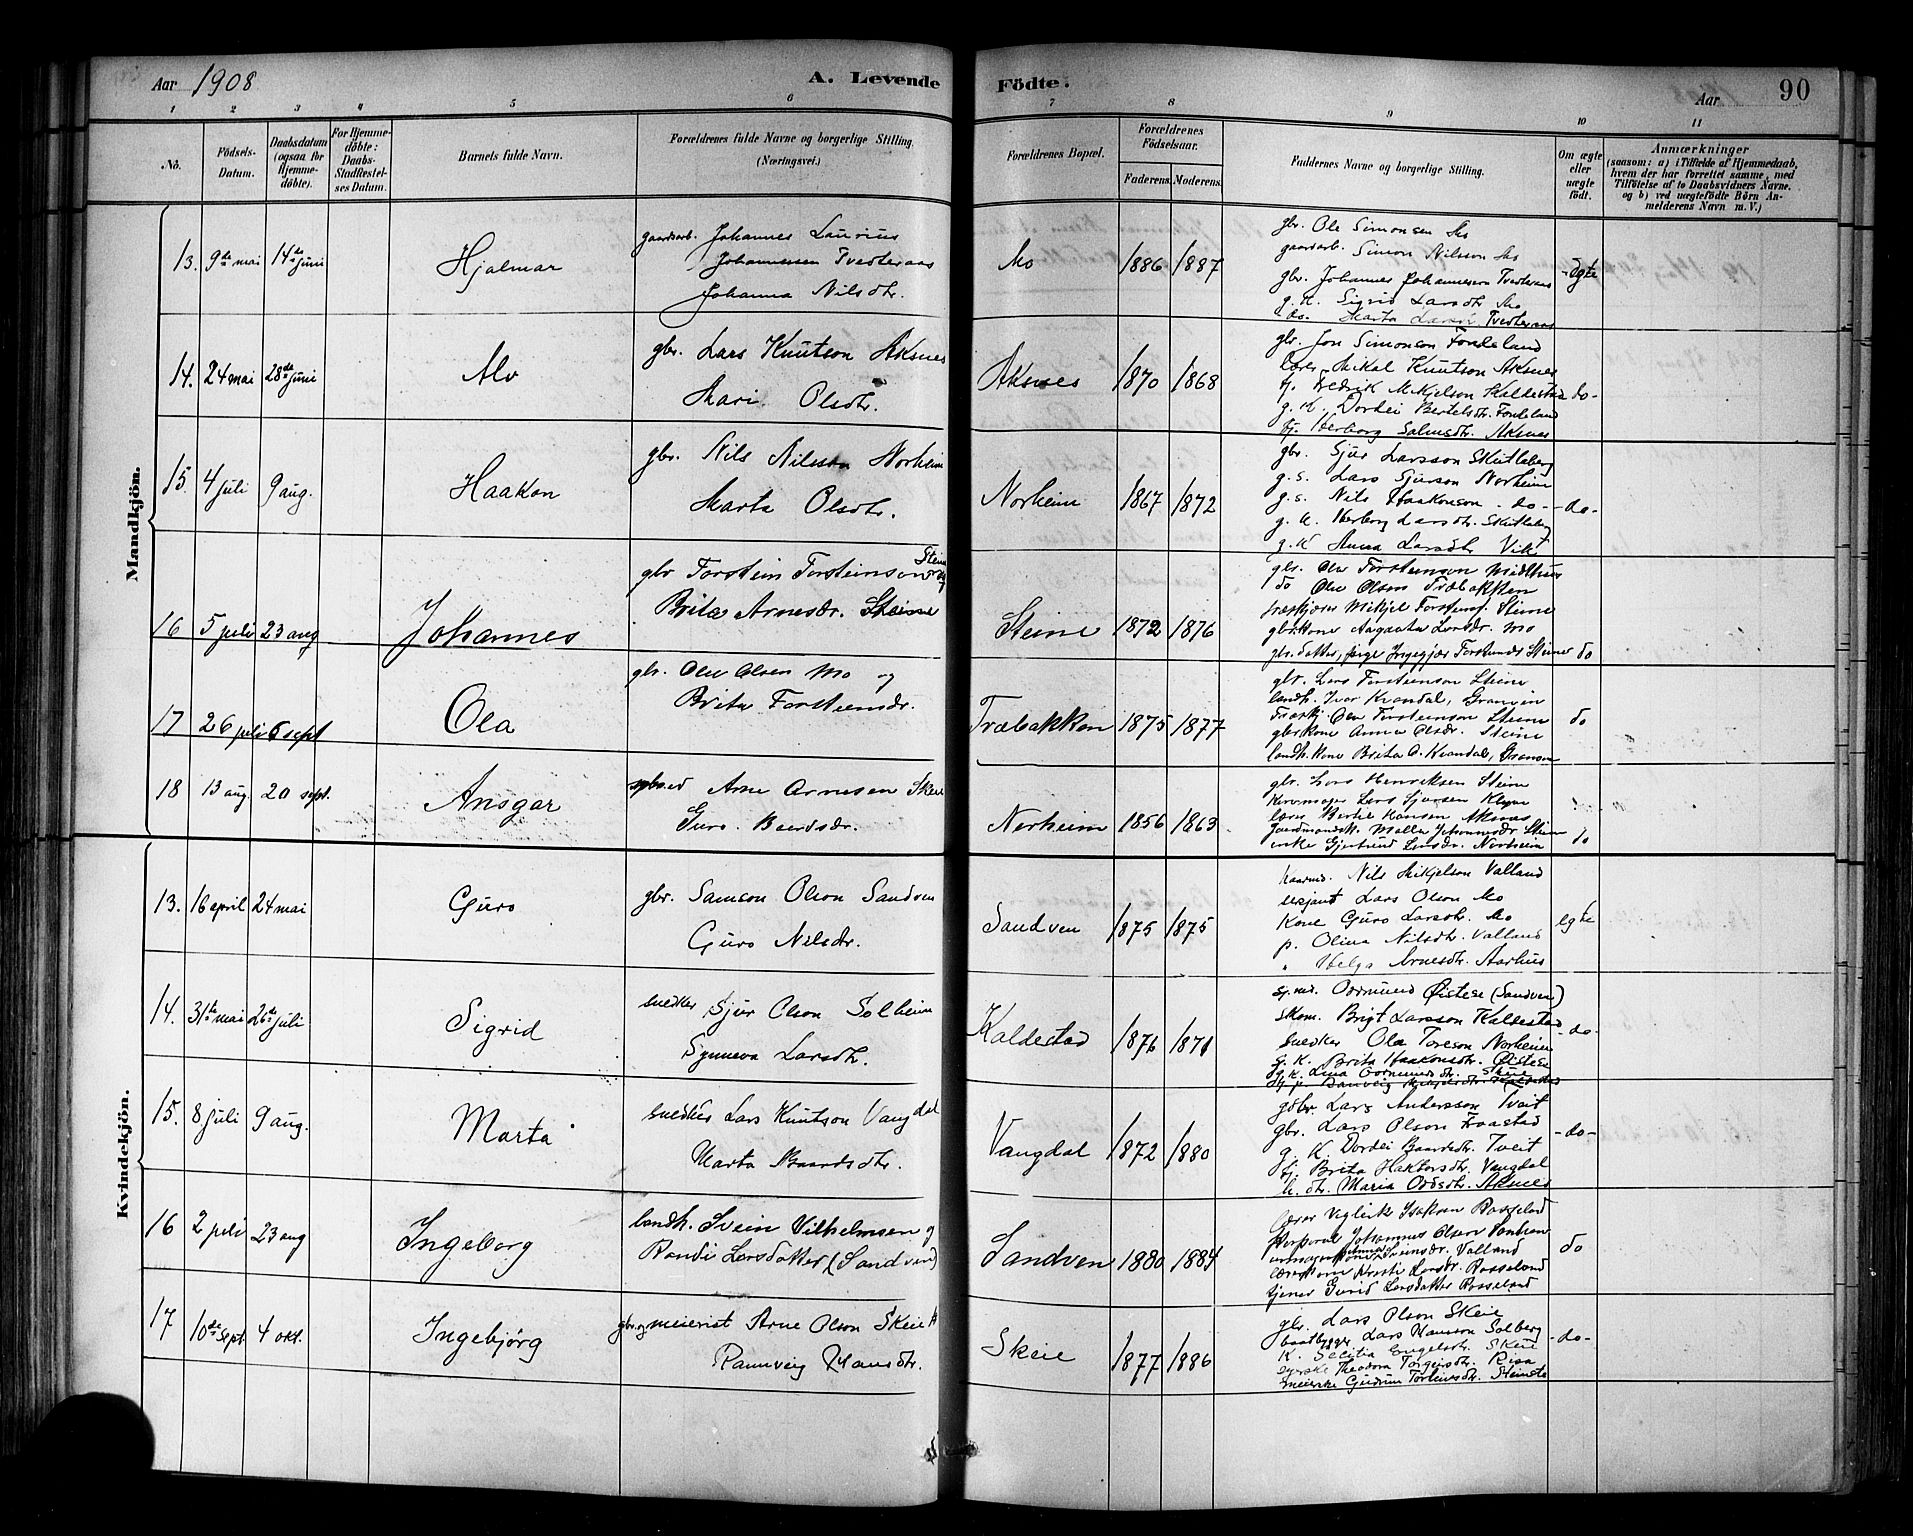 Aar 1908 A. Levende Födte. Aar 90
1 2 3 4 5 6 7 8 9 10 11
No.
Födsels-Datum.
Daabsdatum (ogsaa for Hjemmedöbte).
For Hjemmedöbte: Daabs-Stadfestelses Datum.
Barnets fulde Navn.
Forældrenes fulde Navne og borgerlige Stilling. (Næringsvei.)
Forældrenes Bopæl.
Forældrenes Födselsaar.
Faderens. Moderens.
Faddernes Navne og borgerlige Stilling.
Om ægte eller uægte födt.
Anmærkninger
(saasom: a) i Tilfælde af Hjemmedaab,
hvem der har forrettet samme, med
Tilföielse af to Daabsvidners Navne.
og b) ved uægtefödte Börn Anmelderens Navn m. V.)
Mandkjön.
13. 9de mai 14de juni Hjalmar
gaardarb. Johannes Laurius
Johannessen Tvedteraas
Johanna Nilsdtr.
Mo 1886 1887
gbr. Ole Simonsen Mo
gaardarb. Simon Nilsson Mo
gbr. Johannes Johannessen Tvedteraas
g. K. Sigrid Larsdtr Mo
do. Marta Larsdtr Tvedteraas
ægte
14. 24 mai 28de juni Alv
gbr. Lars Knutson Aksnes
Mari Olsdtr.
Aksnes 1870 1868
gbr. Jon Simonson Fondeland
Lærer Mikal Knutson Aksnes
tj. Fredrik Mikjelson Kaldestad
g. K. Dordei Bertelsdtr. Fondeland
tj. Herborg Salmsdtr. Aksnes
-do-
15. 4 juli 9 aug. Haakon
gbr. Nils Nilsson Norheim
Marta Olsdtr.
Norheim 1867 1872
gbr. Sjur Larsson Skutleberg
g. s. Lars Sjurson Norheim
g. s. Nils Haakonson -do-
g. K. Herborg Larsdtr. Skutleberg
g. K Anna Larsdtr Vik
-do-
16 5 juli 23 aug Johannes
gbr Torstein Torsteinson Steine og
Brita Arnesdr. Steine
Steine 1872 1876
gbr. Ole Torsteinson Midthus
do Ole Olsen Træbakken
Mikjel Torsteins. Steine
gbr.kone Aagaata Larsdr. Mo
gbr. datter, pige Ingegjær Torsteinsdr Steine
do
17 26 juli 6 sept Ola
gbr. Ole Olsen Mo og
Brita Torsteinsdr.
Træbakken 1875 1877
gbr. Lars Torsteinson Steine
landh. Ivar Kvandal, Granvin
Træskj. Ole Torsteinson Steine
gbr.kone Anna Olsdr. Steine
landh. kone Brita O. Kvandal, Granvin
do
18 13 aug. 20 sept. Ansgar
Arne Arnesen Skeie
Guro Baardsdr.
Norheim 1856 1863
gbr. Lars Henriksen Steine
Lars Sjursen
lærer Bertel Hansen Aksnes
Gaardmandsk. Malla Johannesdr Steine
enke Gjertrud Larsdr. Norheim
do
Kvindekjön.
13. 16 april 24 mai Guro
gbr. Samson Olson Sandven
Guro Nilsdtr.
Sandven 1875 1875
kaarmd. Nils Mikjelson Valland
sersjant Lars Olson Mo
Kone Guro Larsdtr. Mo
p. Olina Nilsdtr. Valland
" Helga Arnesdtr. Aarhus
egte
14. 31te mai 26de juli Sigrid
snedker Sjur Olson Solheim
Synneva Larsdtr.
Kaldestad 1876 1871
Ormund Øistese (Sandven)
skom. Brigt Larsson Kaldestad
snedker Ola Toreson Norheim
g. K. Brita Haakonsdtr. Øistese
g. K. Lina Ormundsdtr. Skeie
-do-
15. 8 juli 9 aug. Marta
snedker Lars Knutson Vangdal
Marta Baardsdtr.
Vangdal 1872 1880
gbr. Lars Andersson Tveit
gbr. Lars Olson Fraastad
g. K. Dordei Baardsdtr. Tveit
tj. Brita Haktorsdtr. Vangdal
h. dtr. Maria Oddsdtr. Aksnes
-do-
16 2 juli 23 aug Ingeborg
landh. Svein Vilhelmsen og
Randi Larsdatter (Sandven)
Sandven 1880 1884
lærer Isaksen Rosseland
Korporal Johannes Olsen Sandven
Sveinsdr. Valland
lærerkone Kristi Larsdr. Rosseland
tjener Gurid Larsdatter Rosseland
do
17 10de sept. 4 okt. Ingebjörg
gbr. og meierist Arne Olson Skeie
Rannveig Hansdtr.
Skeie 1877 1886
gbr. Lars Olson Skeie
baatbygger Lars Hansson Solberg
K. Secitia Engelsdtr. Skeie
Theodora Torgeirsdtr. Risa
meierske Gudrun Torleivsdtr. Steinstø
-do-